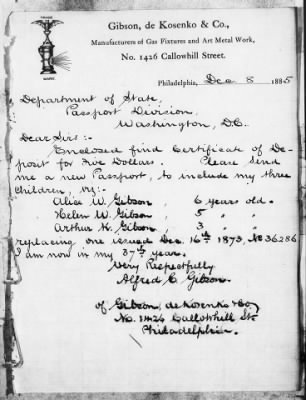 Gibson, de Kosenko & Co.,
Manufacturers of Gas Fixtures and Art Metal Work,
No. 1426 Callowhill Street.
Philadelphia, Dec 8 1885
Department of State,
Passport Division,
Washington, D.C.
Dear Sirs:-
Enclosed find Certificate of De-
posit for Five Dollars. Please send
me a new Passport, to include my three
Children, viz:-
Alice W. Gibson, 6 years old.
Helen W. Gibson, 5 " "
Arthur H. Gibson, 3 " "
replacing one issued Dec. 16th 1873, No 36286
I am now in my 37th year.
Very Respectfully
Alfred C. Gibson.
of Gibson, de Kosenko & Co
No. 1426 Callowhill St
Philadelphia.